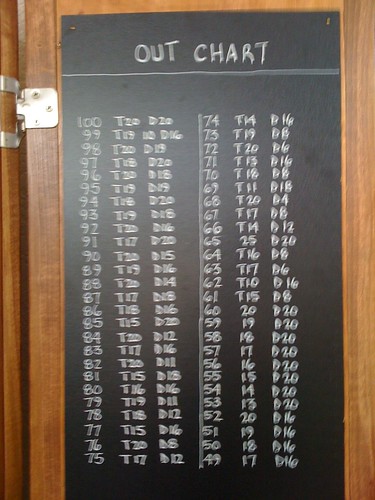 OUT CHART
100 T20 D20
99 T19 10 D16
98 T20 D19
97 T19 D20
96 T20 D18
95 T19 D19
94 T18 D20
93 T19 D18
92 T20 D16
91 T17 D20
90 T20 D15
89 T19 D16
88 T20 D14
87 T17 D18
86 T18 D16
85 T15 D20
84 T20 D12
83 T17 D16
82 T20 D11
81 T15 D18
80 T16 D16
79 T19 D11
78 T18 D12
77 T15 D16
76 T20 D8
75 T17 D12
74 T14 D16
73 T19 D8
72 T20 D6
71 T13 D16
70 T18 D8
69 T11 D18
68 T20 D4
67 T17 D8
66 T14 D12
65 25 D20
64 T16 D8
63 T17 D6
62 T10 D16
61 T15 D8
60 20 D20
59 19 D20
58 18 D20
57 17 D20
56 16 D20
55 15 D20
54 14 D20
53 13 D20
52 20 D16
51 19 D16
50 18 D16
49 17 D16